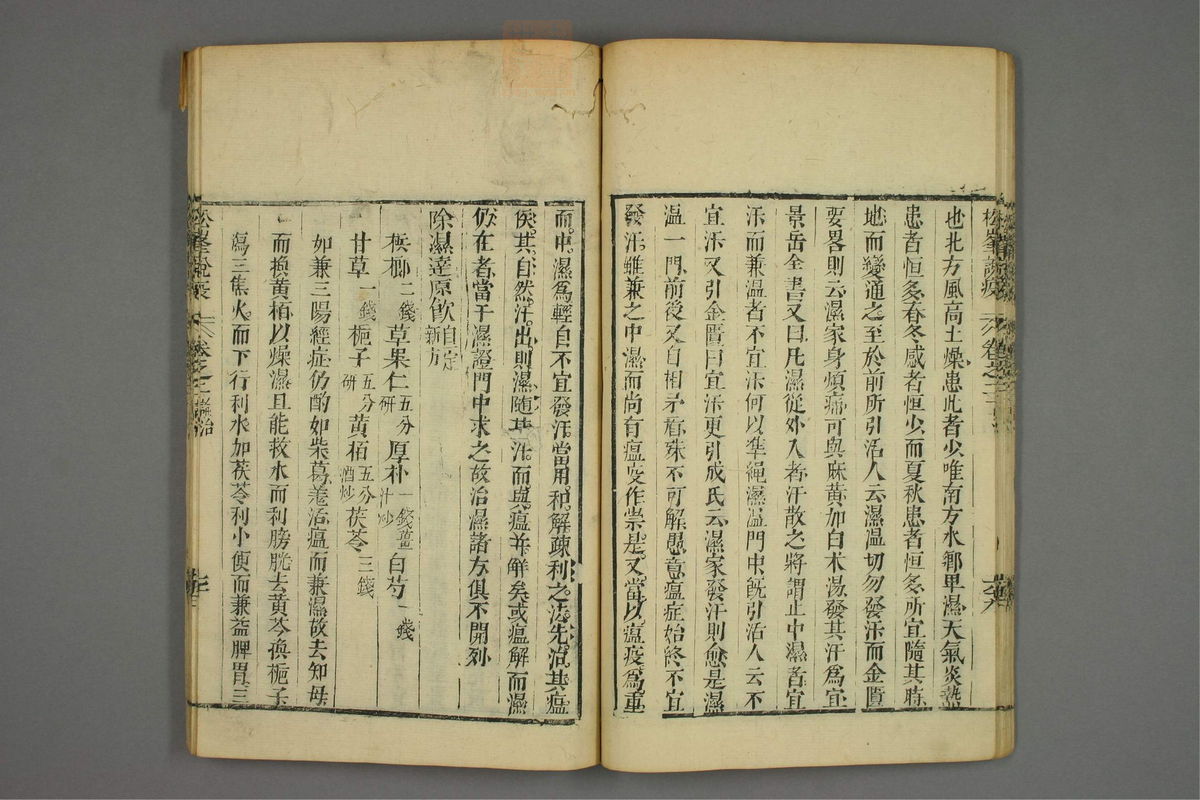 也北方風高土燥患此者少唯南方水鄉卑濕天氣炎熱
患者恒多春冬感者恒少而夏秋患者恒多所宜隨其時
地而變通之至於前所引活人云濕溫切勿發汗而金匱
要畧則云濕家身煩痛可與麻黃加白术湯發其汗爲宜
景岳全書又曰凡濕從外入者汗散之將謂止中濕者宜
汗而兼溫者不宜汗何以準繩濕溫門中既引活人云不
宜汗又引金匱曰宜汗更引成氏云濕家發汗則愈是濕
溫一門前後又自相矛盾殊不可解愚意瘟症始終不宜
發汗雖兼之中濕而尚有瘟疫作祟是又當以瘟疫爲重
而中濕爲輕自不宜發汗當用和解疎利之法先治其瘟
俟其自然汗出則濕隨其汗而與瘟並解矣或瘟解而濕
仍在者當于濕證門中求之故治濕諸方俱不開列
除濕達原飲自定新方
梹榔二錢草果仁五分研厚朴一錢薑汁炒白芍一錢
甘草一錢梔子五分研黃栢五分酒炒茯苓三錢
如兼三陽經症仍酌如柴葛羗活瘟而兼濕故去知母
而換黃栢以燥濕且能救水而利膀胱去黃芩換梔子
瀉三焦火而下行利水加茯苓利小便而兼益脾胃三
松峯說疫
卷之二
雜治